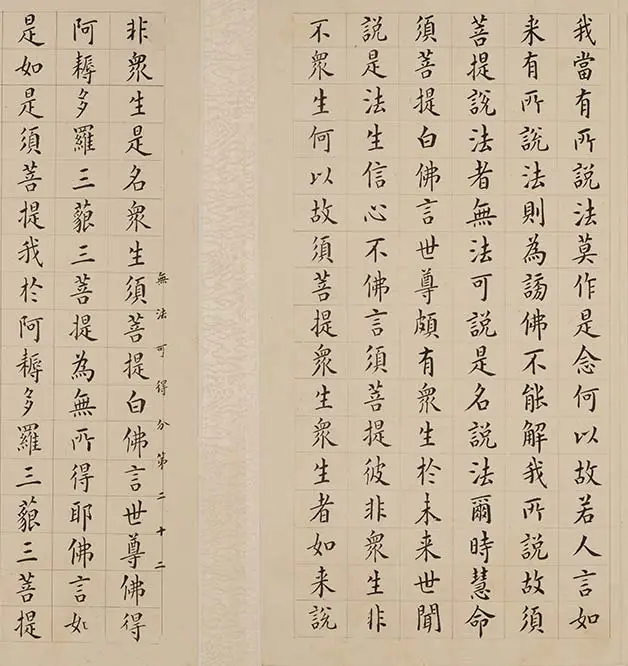 我當有所說法莫作是念何以故若人言如
来有所說法則為謗佛不能解我所說故須
菩提說法者無法可說是名說法爾時慧命
須菩提白佛言世尊頗有衆生於未来世聞
說是法生信心不佛言須菩提彼非衆生非
不衆生何以故須菩提衆生衆生者如来說
無法可得分第二十二
非衆生是名衆生須菩提白佛言世尊佛得
阿耨多羅三藐三菩提為無所得耶佛言如
是如是須菩提我於阿耨多羅三藐三菩提